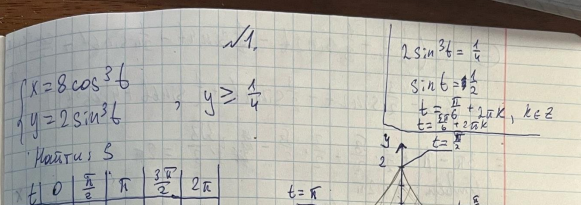 №1.
{ x = 8cos³t
{ y = 2sin³t , y ≥ 1/4
Найти: S
t | 0 | π/2 | π | 3π/2 | 2π
2sin³t = 1/4
sint = 1/2
t = π/6 + 2πk, k∈Z
t = 5π/6 + 2πk
y
2
t = π/2
t = π